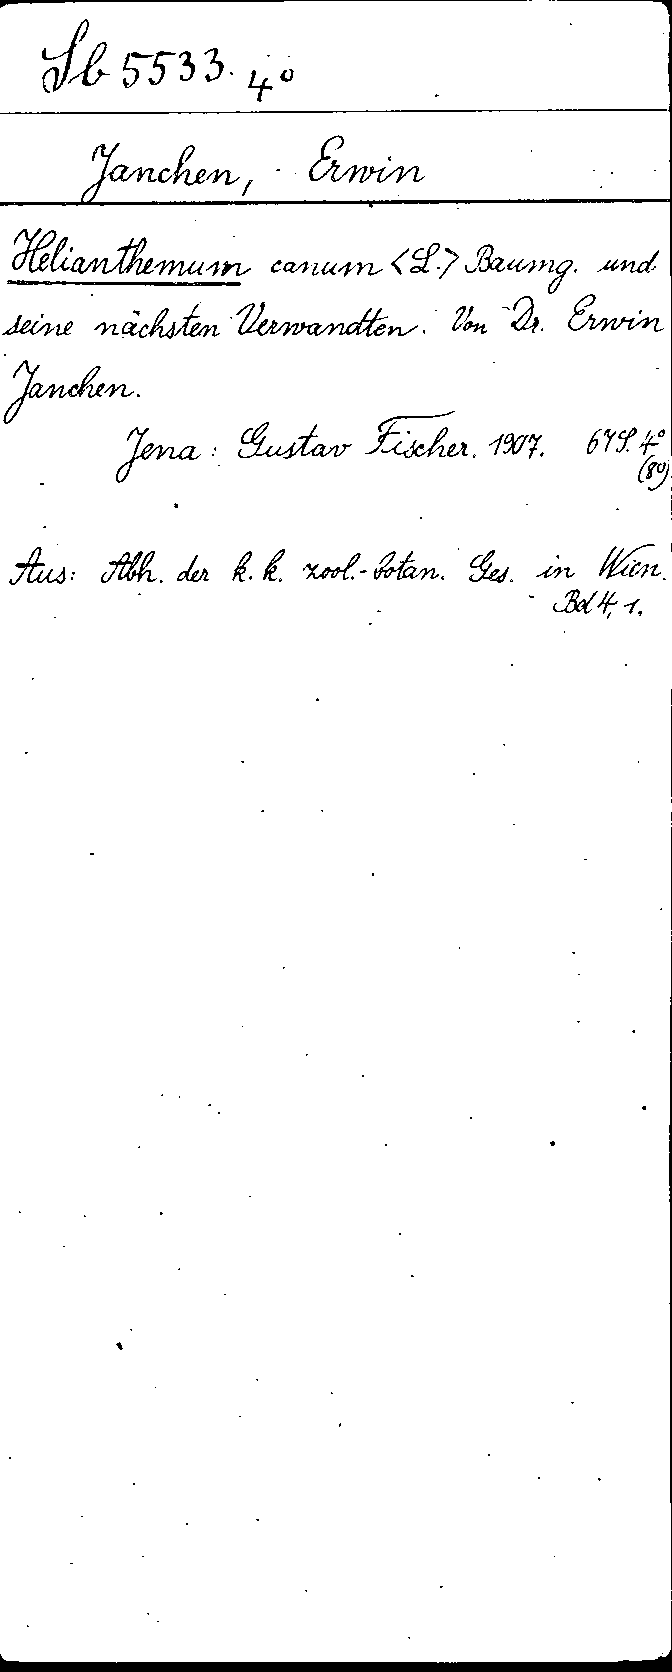 Sb 5533. 4°
Janchen, Erwin
Helianthemum canum <L.> Baumg. und
seine nächsten Verwandten. Von Dr. Erwin
Janchen.
Jena: Gustav Fischer. 1907. 67 S. 4°
(8°)
Aus: Abh. der k. k. zool.-botan. Ges. in Wien.
Bd 4, 1.